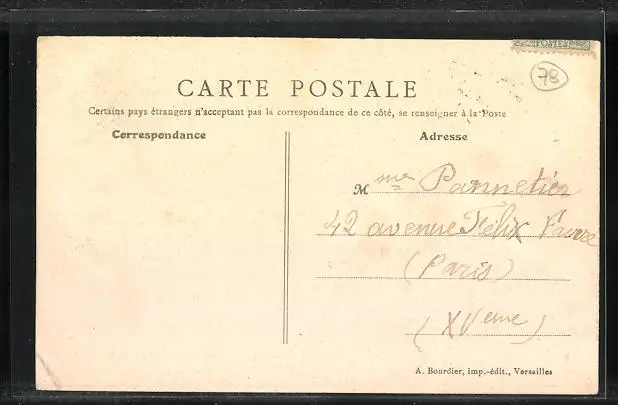 POSTES
78
CARTE POSTALE
Certains pays étrangers n'acceptant pas la correspondance de ce côté, se renseigner à la Poste
Correspondance
Adresse
Mme Pannetier
42 avenue Félix Faure
(Paris)
(XVeme)
A. Bourdier, imp.-édit., Versailles